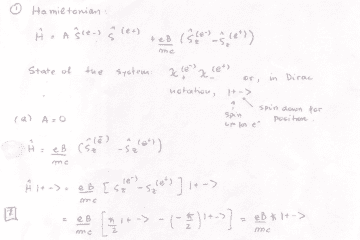 ① Hamiltonian:
Ĥ = A Ŝ^(e-) Ŝ^(e+) + eB/mc (Ŝ_z^(e-) - Ŝ_z^(e+))
State of the system: χ_+^(e-) χ_-^(e+) or, in Dirac
notation, |+->
spin e-
spin down for
positron.
(a) A=0
Ĥ = eB/mc (Ŝ_z^(e-) - Ŝ_z^(e+))
Ĥ |+-> = eB/mc [ Ŝ_z^(e-) - Ŝ_z^(e+) ] |+->
= eB/mc [ ħ/2 |+-> - (-ħ/2) |+-> ] = eB/mc ħ |+->